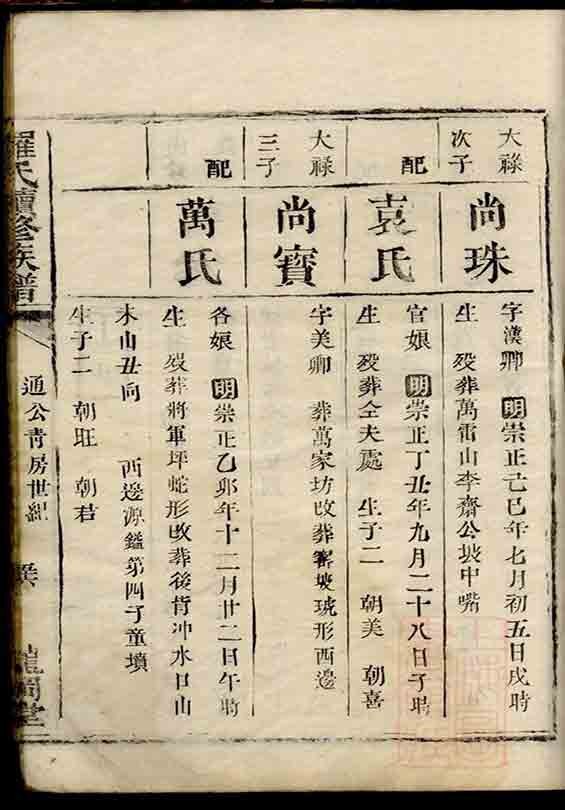 大祿
次子
尚珠
字漢卿 明崇正己巳年七月初五日戌時
生 歿葬萬雷山李齋公坡中嘴
配
袁氏
官娘 明崇正丁丑年九月二十八日子時
生 歿葬仝夫處 生子二 朝美 朝喜
大祿
三子
尚寶
字美卿 葬萬家坊改葬窰坡琥形西邊
配
萬氏
各娘 明崇正乙卯年十二月廿二日午時
生 歿葬將軍坪蛇形改葬後背冲水口山
未山丑向 西邊源鎰第四子童墳
生子二 朝旺 朝君
羅氏續修族譜 通公青房世紀